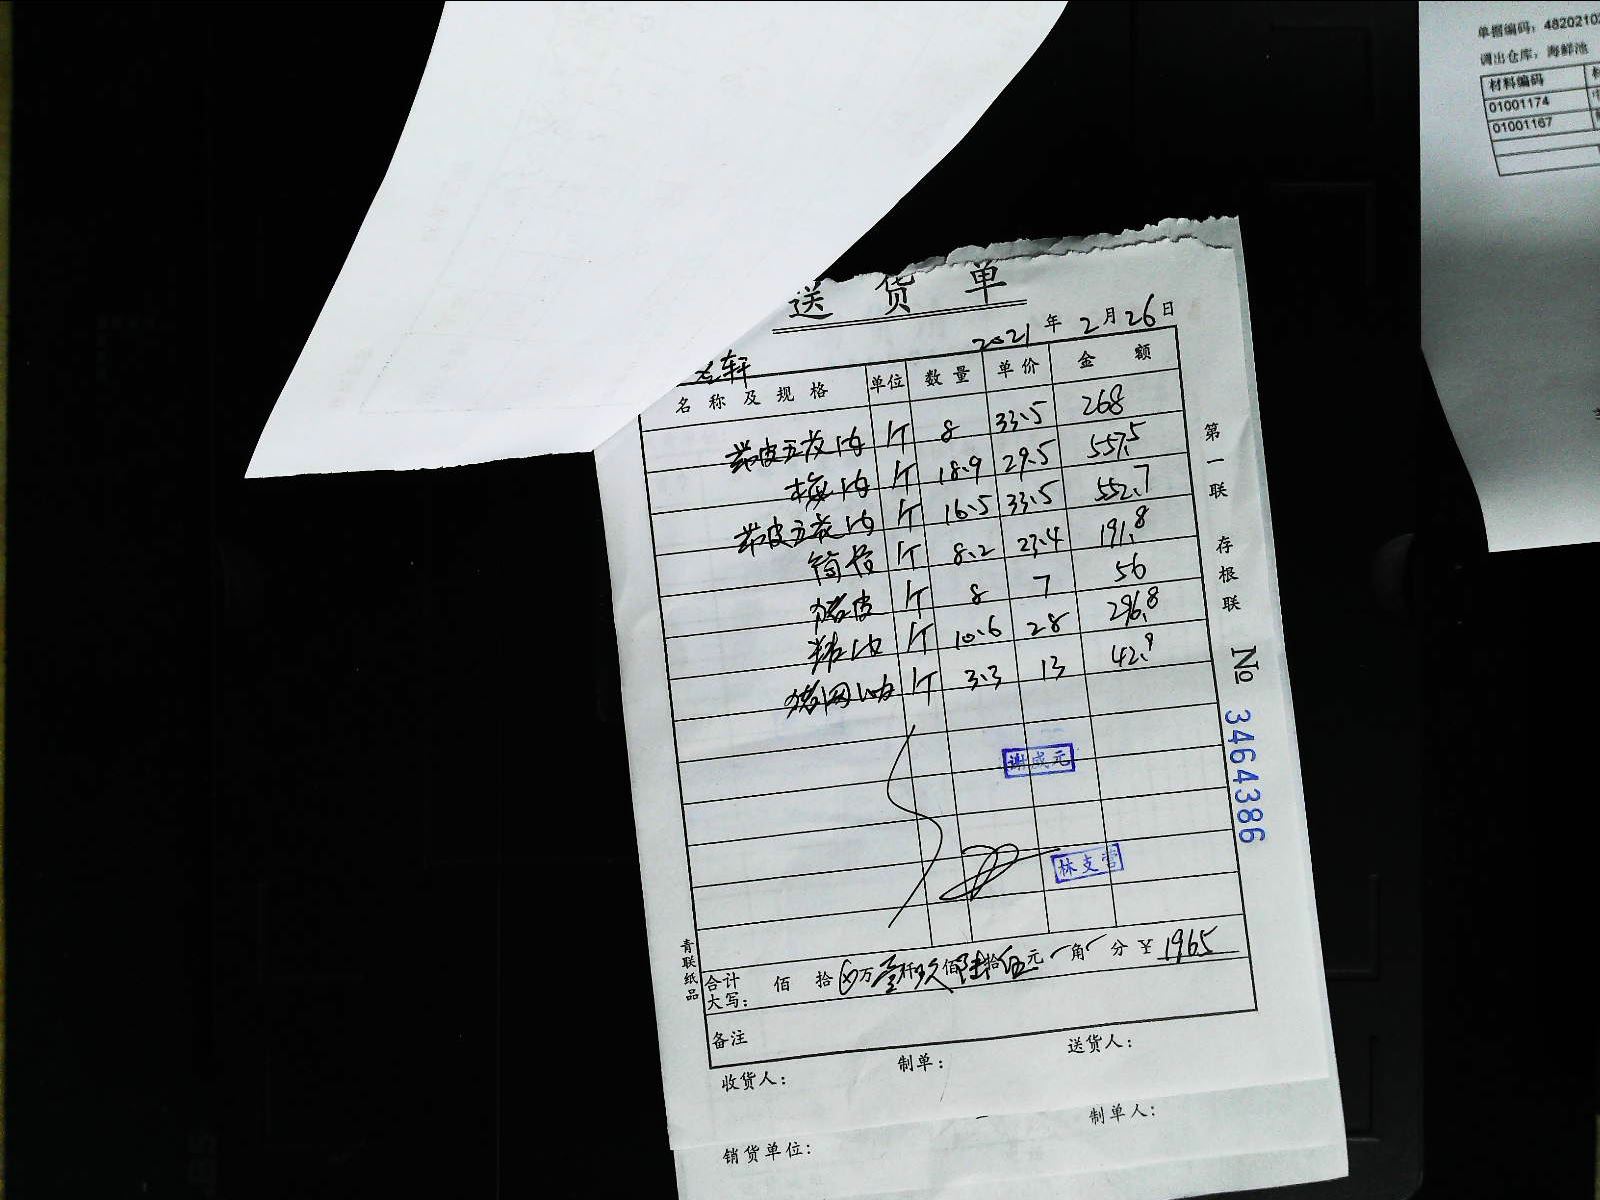 单据编码：4820210
调出仓库：海鲜池
材料编码
01001174
01001167
送货单
2021年2月26日
轩
名称及规格 单位 数量 单价 金额
带皮五花肉 斤 8 33.5 268
梅肉 斤 18.9 29.5 557.5
带皮五花肉 斤 16.5 33.5 552.7
筒骨 斤 8.2 23.4 191.8
猪皮 斤 8 7 56
精肉 斤 10.6 28 296.8
猪网油 斤 3.3 13 42.9
谢成元
林支营
合计大写： 佰 拾 万壹仟玖佰陆拾伍元 角 分 ¥ 1965
备注
收货人： 制单： 送货人：
制单人：
销货单位：
第一联 存根联
№ 3464386
青联纸品